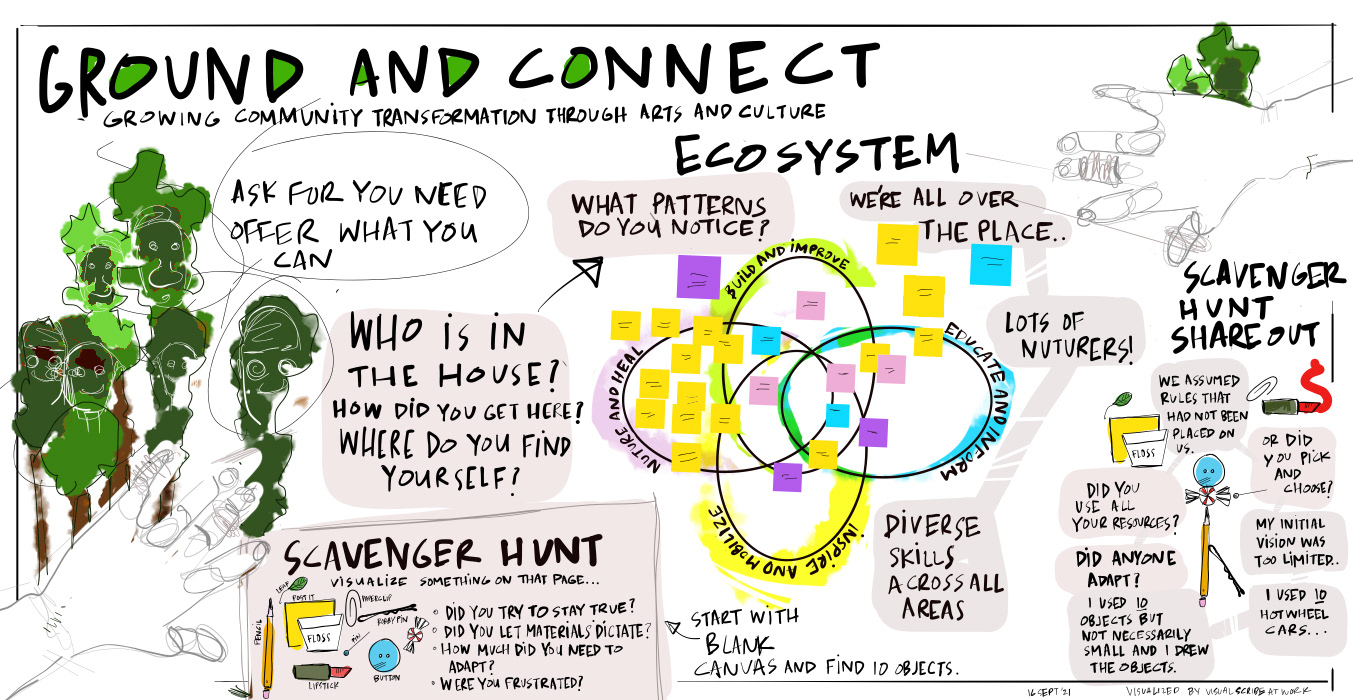 GROUND AND CONNECT
GROWING COMMUNITY TRANSFORMATION THROUGH ARTS AND CULTURE
ASK FOR YOU NEED
OFFER WHAT YOU
CAN
ECOSYSTEM
WHAT PATTERNS
DO YOU NOTICE?
WE'RE ALL OVER
THE PLACE..
WHO IS IN
THE HOUSE?
HOW DID YOU GET HERE?
WHERE DO YOU FIND
YOURSELF?
BUILD AND IMPROVE
EDUCATE AND INFORM
NUTURE AND HEAL
INSPIRE AND MOBILIZE
LOTS OF
NUTURERS!
DIVERSE
SKILLS
ACROSS ALL
AREAS
SCAVENGER HUNT
VISUALIZE SOMETHING ON THAT PAGE...
LEAF
POST IT
PAPERCLIP
BOBBY PIN
PENCIL
FLOSS
PIN
LIPSTICK
BUTTON
• DID YOU TRY TO STAY TRUE?
• DID YOU LET MATERIALS DICTATE?
• HOW MUCH DID YOU NEED TO
ADAPT?
• WERE YOU FRUSTRATED?
START WITH
BLANK
CANVAS AND FIND 10 OBJECTS.
SCAVENGER
HUNT
SHARE OUT
WE ASSUMED
RULES THAT
HAD NOT BEEN
PLACED ON
US.
FLOSS
OR DID
YOU PICK
AND
CHOOSE?
DID YOU
USE ALL
YOUR RESOURCES?
MY INITIAL
VISION WAS
TOO LIMITED..
DID ANYONE
ADAPT?
I USED 10
OBJECTS BUT
NOT NECESSARILY
SMALL AND I DREW
THE OBJECTS.
I USED 10
HOTWHEEL
CARS...
16 SEPT '21
VISUALIZED BY VISUALSCRIBE AT WORK